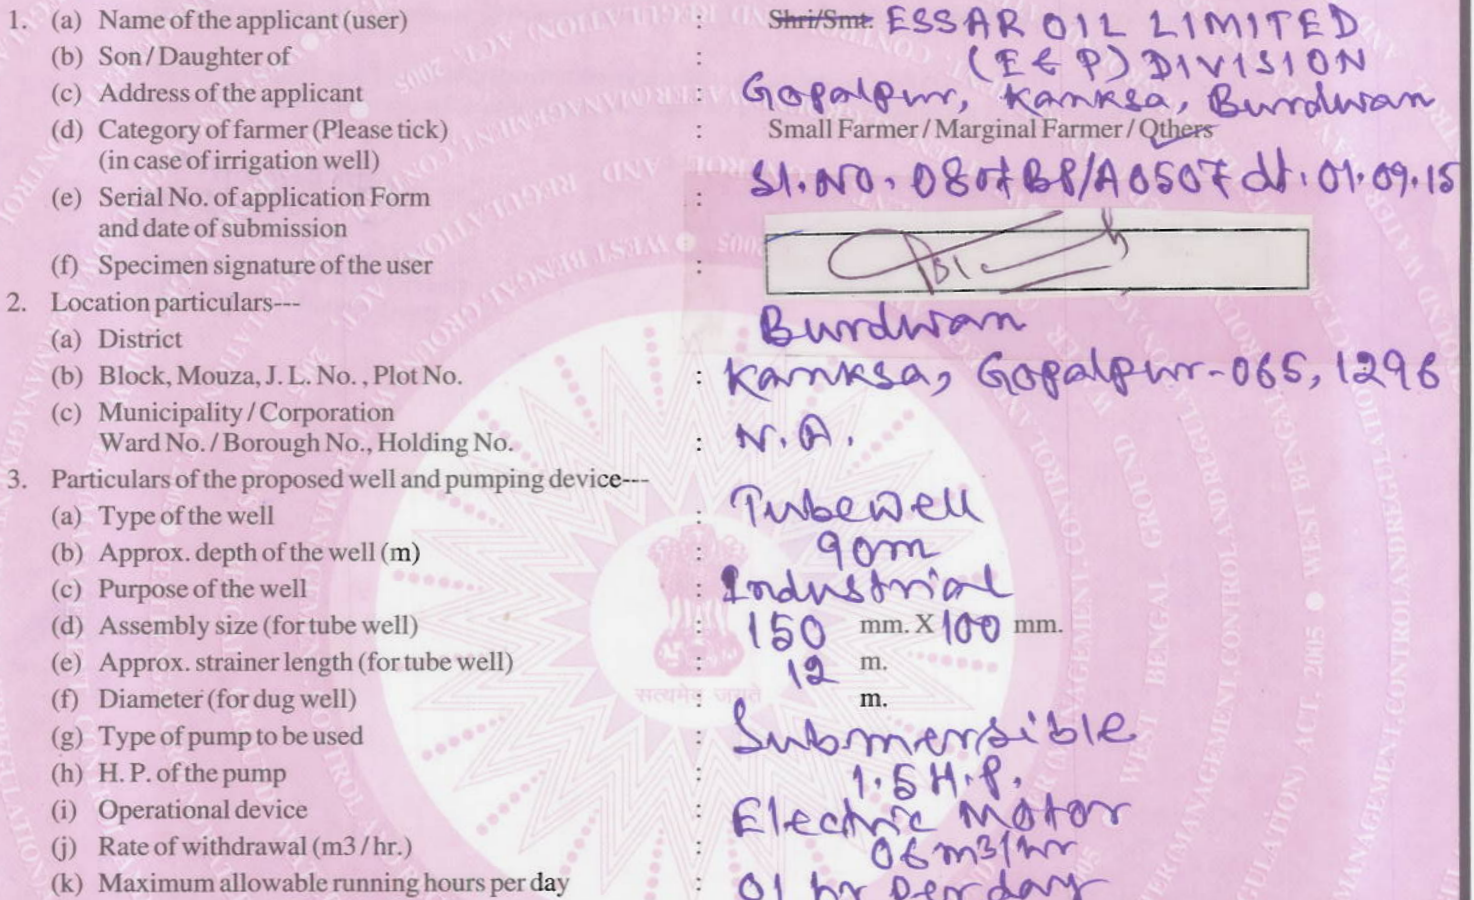 1. (a) Name of the applicant (user) : Shri/Smt. ESSAR OIL LIMITED
(b) Son / Daughter of : (E & P) DIVISION
(c) Address of the applicant : Gopalpur, Kanksa, Burdwan
(d) Category of farmer (Please tick) : Small Farmer / Marginal Farmer / Others
(in case of irrigation well)
(e) Serial No. of application Form : Sl. No. 0807BP/A0507 dt: 01.09.15
and date of submission
(f) Specimen signature of the user :
2. Location particulars---
(a) District : Burdwan
(b) Block, Mouza, J. L. No. , Plot No. : Kanksa, Gopalpur-065, 1296
(c) Municipality / Corporation
Ward No. / Borough No., Holding No. : N.A.
3. Particulars of the proposed well and pumping device---
(a) Type of the well : Tubewell
(b) Approx. depth of the well (m) : 90m
(c) Purpose of the well : Industrial
(d) Assembly size (for tube well) : 150 mm. X 100 mm.
(e) Approx. strainer length (for tube well) : 12 m.
(f) Diameter (for dug well) : m.
सत्यमेव जयते
(g) Type of pump to be used : Submersible
(h) H. P. of the pump : 1.5 H.P.
(i) Operational device : Electric Motor
(j) Rate of withdrawal (m3 / hr.) : 06 m3/hr
(k) Maximum allowable running hours per day : 01 hr per day